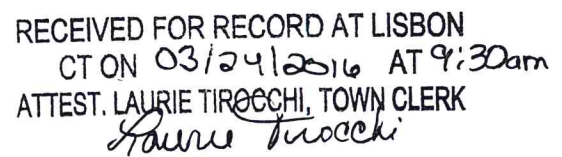 RECEIVED FOR RECORD AT LISBON
CT ON 03/24/2016 AT 9:30am
ATTEST. LAURIE TIROCCHI, TOWN CLERK
Laurie Tirocchi